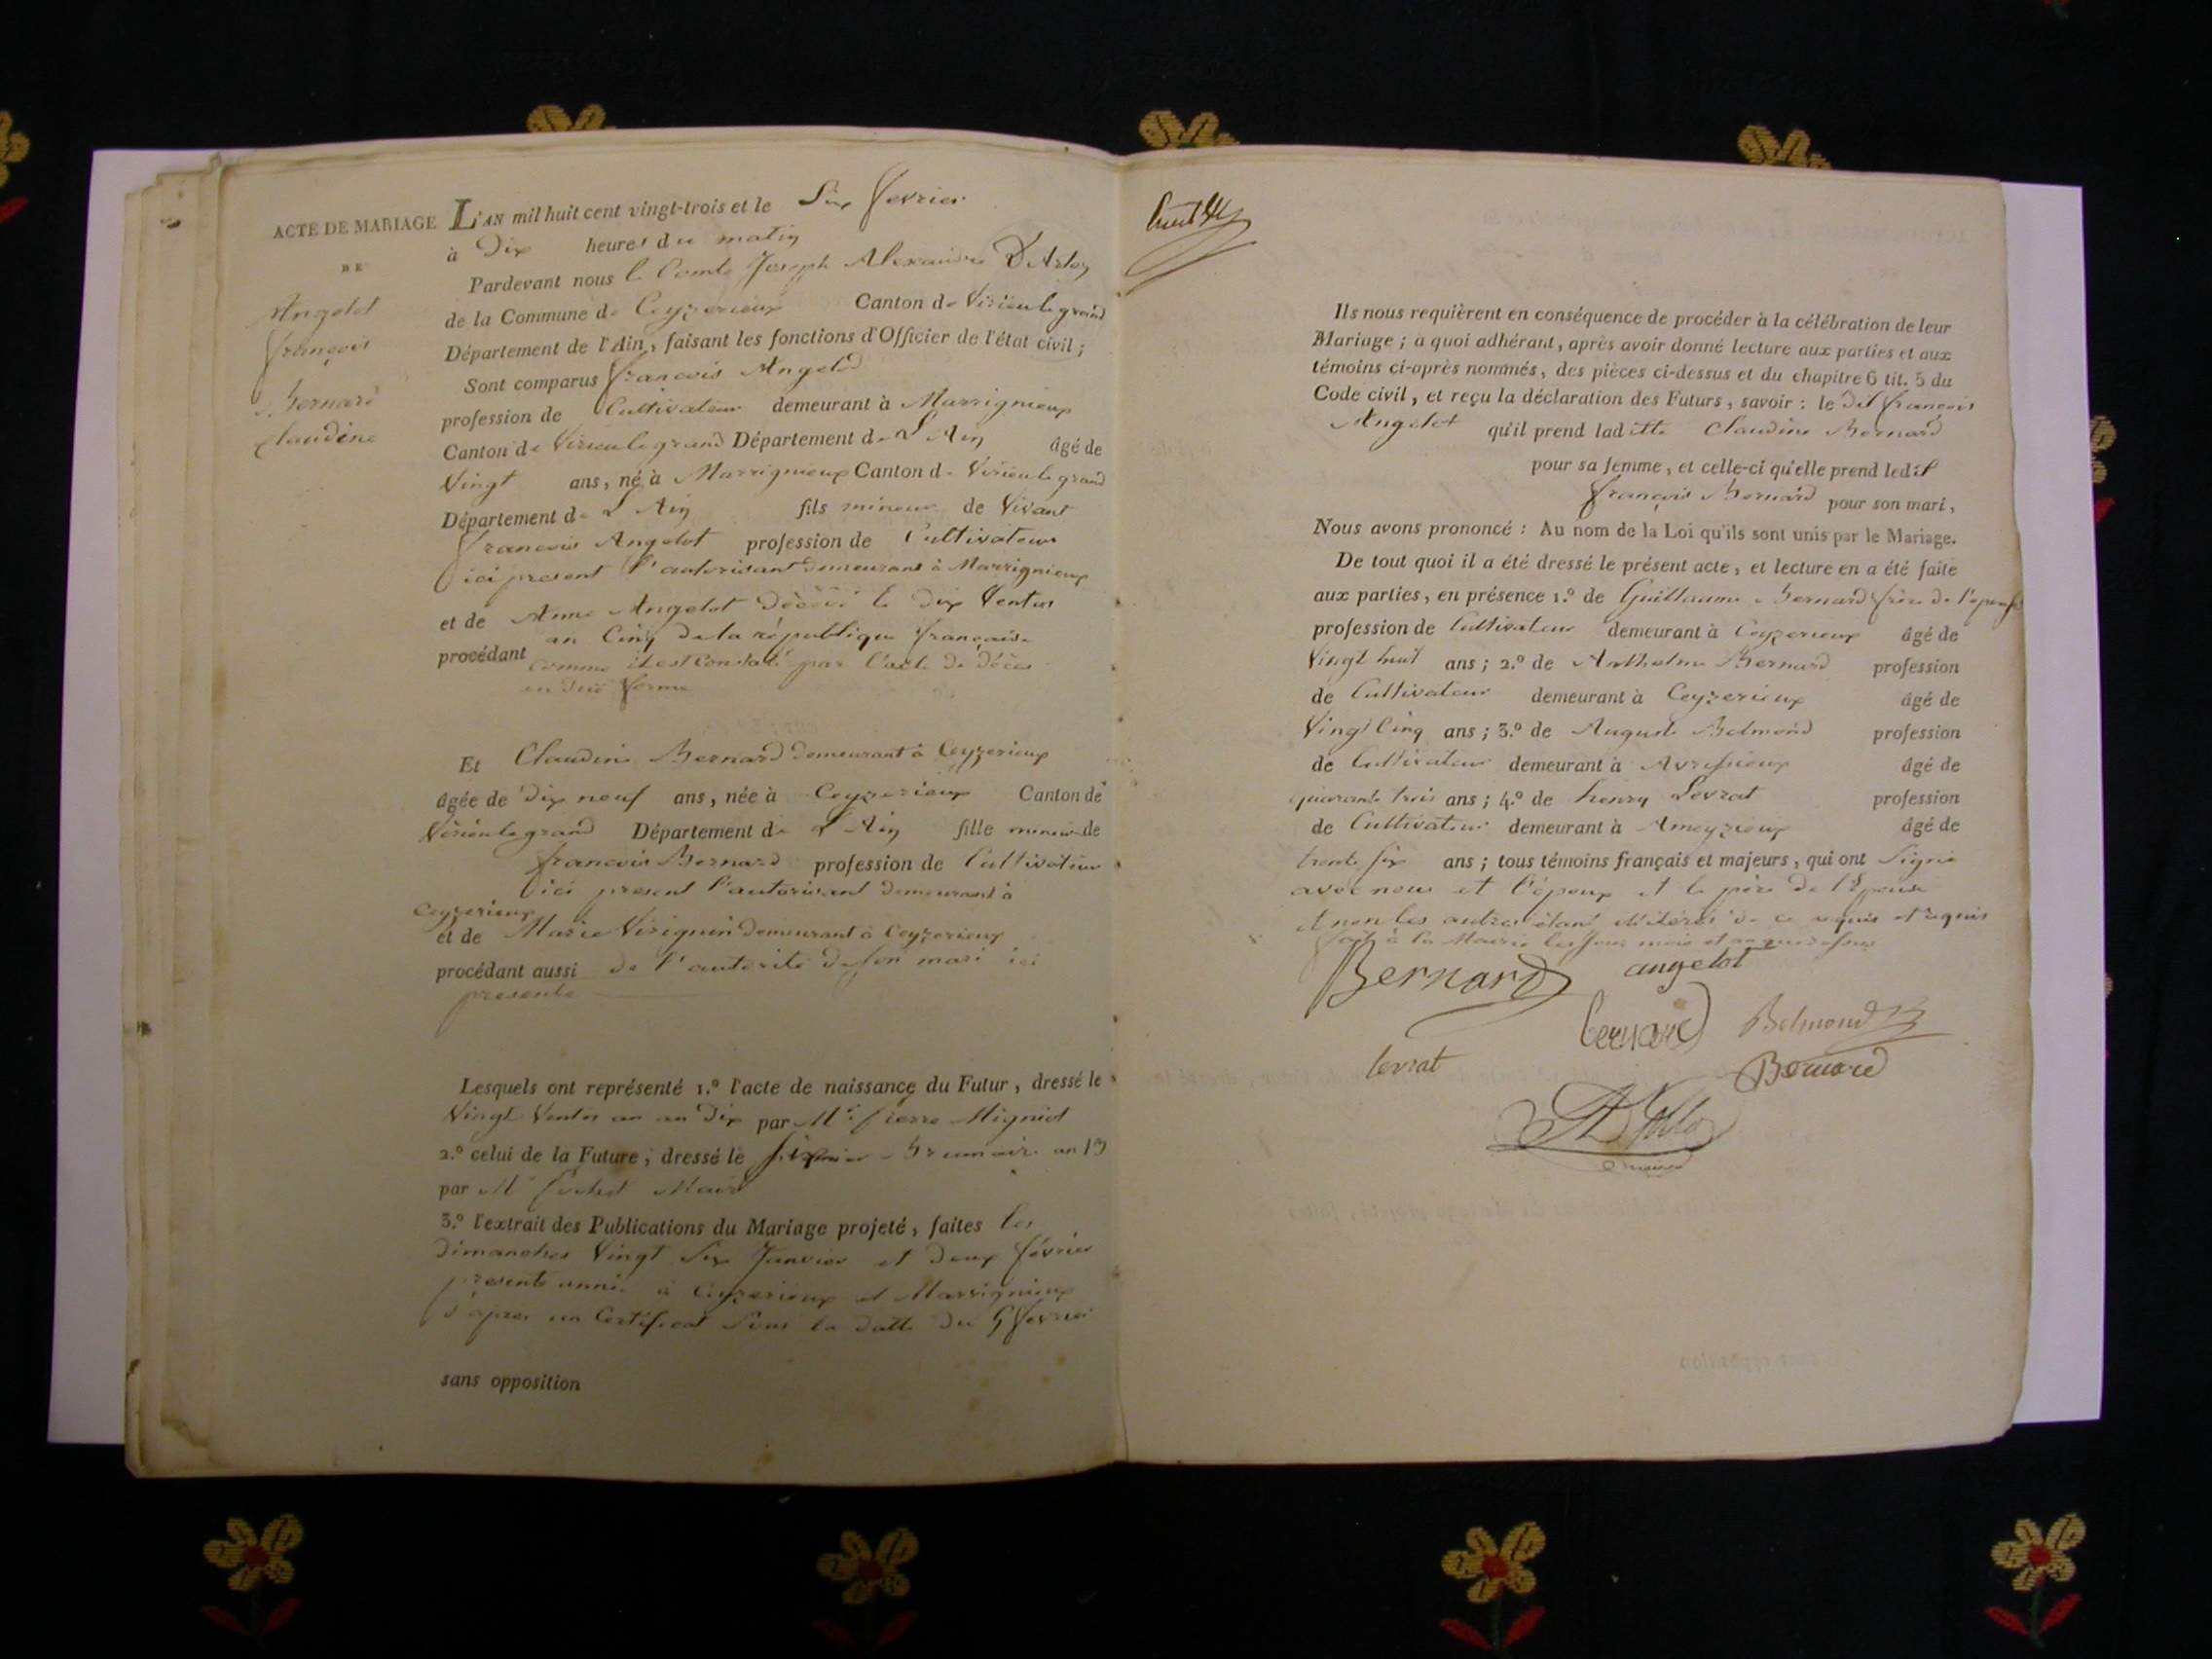 ACTE DE MARIAGE
DE
Angelot
françois
Bernard
claudine
L'AN mil huit cent vingt-trois et le Six fevrier
à Dix heures du matin
Pardevant nous le Comte Joseph Alexandre D'Arloz
de la Commune de Ceyzerieux Canton de Virieu le grand
Département de l'Ain, faisant les fonctions d'Officier de l'état civil;
Sont comparus francois Angelod
profession de Cultivateur demeurant à Marrignieux
Canton de Virieu le grand Département de L'Ain âgé de
Vingt ans, né à Marrignieux Canton de Virieu le grand
Département de L'Ain fils mineur de Vivant
francois Angelot profession de Cultivateur
ici present l'autorisant demeurant à Marrignieux
et de Anne Angelot décédé le dix Ventos
an Cinq de la république française
procédant comme il est Constaté par l'acte de décès
en due forme
Et Claudine Bernard demeurant à Ceyzerieux
âgée de dix neuf ans, née à Ceyzerieux Canton de
Virieu le grand Département de L'Ain fille mineur de
francois Bernard profession de Cultivateur
ici present l'autorisant demeurant à
Ceyzerieux
et de Marie Virignin demeurant à Ceyzerieux
procédant aussi de l'autorité de son mari ici
presente
Lesquels ont représenté 1.º l'acte de naissance du Futur, dressé le
Vingt Ventos an an Dix par Mr. pierre Migniot
2.º celui de la Future, dressé le Brumaire an 13
par Mr Maire
3.º l'extrait des Publications du Mariage projeté, faites les
dimanches Vingt Six Janvier et deux février
presente année à Ceyzerieux et Marrignieux
d'après un Certificat Sous la datte du 5 fevrier
sans opposition
Ils nous requièrent en conséquence de procéder à la célébration de leur
Mariage; à quoi adhérant, après avoir donné lecture aux parties et aux
témoins ci-après nommés, des pièces ci-dessus et du chapitre 6 tit. 5 du
Code civil, et reçu la déclaration des Futurs, savoir: le dit françois
Angelot qu'il prend laditte Claudine Bernard
pour sa femme, et celle-ci qu'elle prend ledit
françois Bernard pour son mari,
Nous avons prononcé: Au nom de la Loi qu'ils sont unis par le Mariage.
De tout quoi il a été dressé le présent acte, et lecture en a été faite
aux parties, en présence 1.º de Guillaume Bernard frère de l'épouse
profession de Cultivateur demeurant à Ceyzerieux âgé de
Vingt huit ans; 2.º de Anthelme Bernard profession
de Cultivateur demeurant à Ceyzerieux âgé de
Vingt Cinq ans; 3.º de Auguste Belmond profession
de Cultivateur demeurant à Avressieux âgé de
quarante trois ans; 4.º de henry Levrat profession
de Cultivateur demeurant à Ameyzieux âgé de
trente six ans; tous témoins français et majeurs, qui ont Signé
avec nous et l'époux et le père de l'Epouse
et non les autres étant de ce requis et
fait à la Mairie les jour mois et an que dessus
Bernard angelot
bernard Belmond
levrat Bernard
D'Arloz
maire